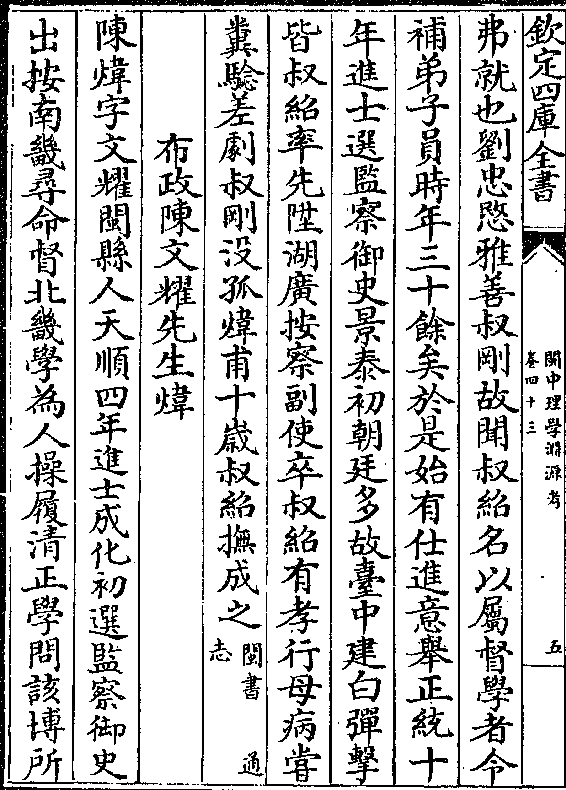 欽定四庫全書
閩中理學淵源考
卷四十三
五
弗就也劉忠愍雅善叔剛故聞叔紹名以屬督學者令
補弟子員時年三十餘矣於是始有仕進意舉正統十
年進士選監察御史景泰初朝廷多故臺中建白彈擊
皆叔紹率先陞湖廣按察副使卒叔紹有孝行母病嘗
糞驗差劇叔剛沒孤煒甫十歲叔紹撫成之閩書 通
志
布政陳文耀先生煒
陳煒字文耀閩縣人天順四年進士成化初選監察御史
出按南畿尋命督北畿學為人操履清正學問該博所